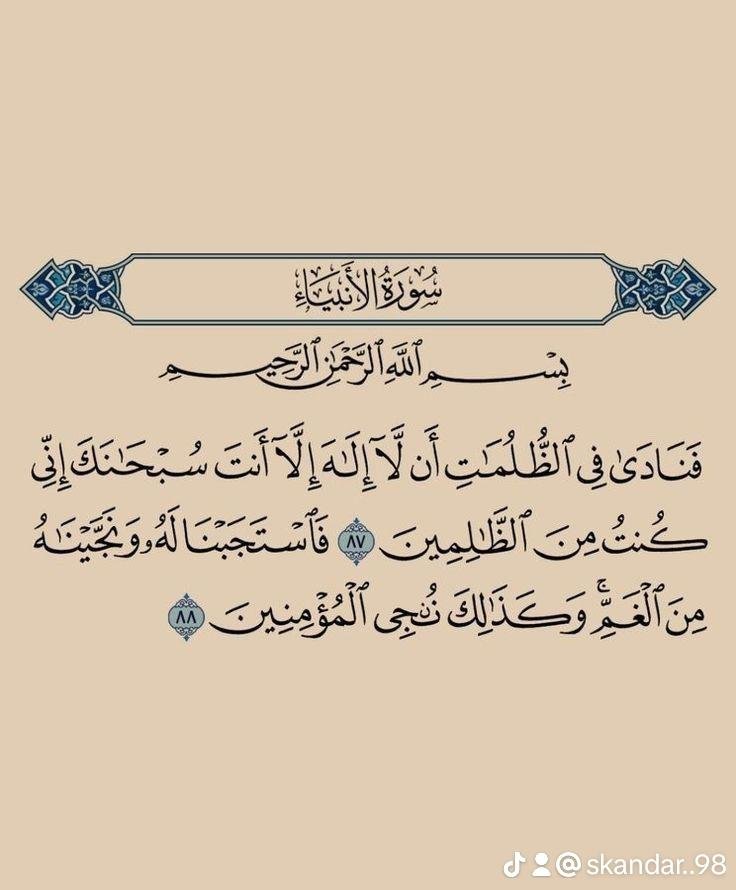 سُورَةُ الأَنبِيَاءِ
بِسۡمِ ٱللَّهِ ٱلرَّحۡمَٰنِ ٱلرَّحِيمِ
فَنَادَىٰ فِي ٱلظُّلُمَٰتِ أَن لَّآ إِلَٰهَ إِلَّآ أَنتَ سُبۡحَٰنَكَ إِنِّي
كُنتُ مِنَ ٱلظَّٰلِمِينَ ٨٧ فَٱسۡتَجَبۡنَا لَهُۥ وَنَجَّيۡنَٰهُ
مِنَ ٱلۡغَمِّۚ وَكَذَٰلِكَ نُـۨجِي ٱلۡمُؤۡمِنِينَ ٨٨
@skandar..98